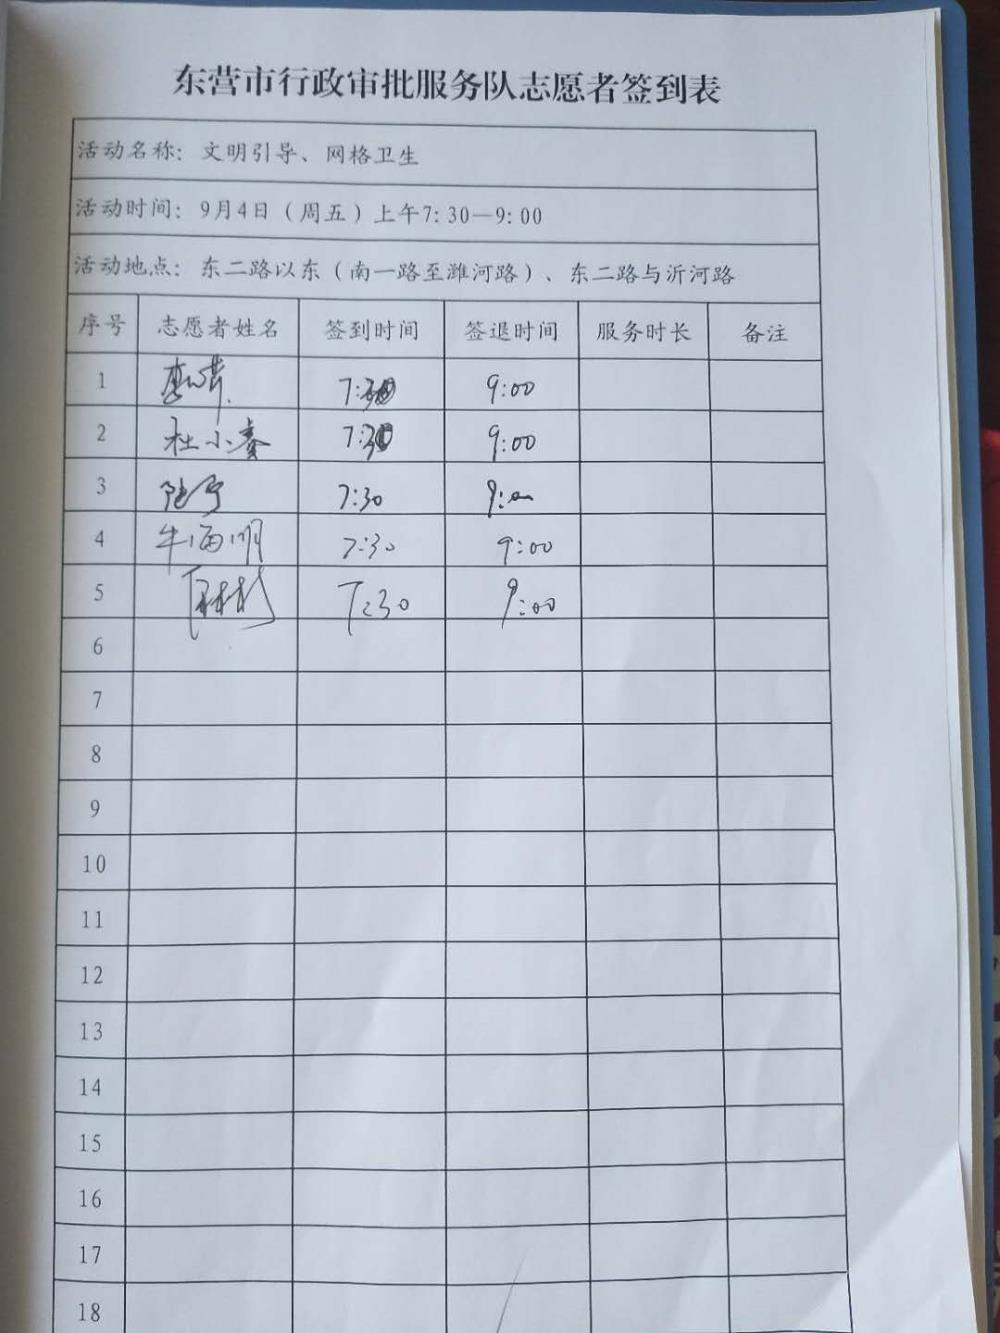 东营市行政审批服务队志愿者签到表
活动名称：文明引导、网格卫生
活动时间：9月4日（周五）上午7:30—9:00
活动地点：东二路以东（南一路至潍河路）、东二路与沂河路
序号 志愿者姓名 签到时间 签退时间 服务时长 备注
1 7:30 9:00
2 杜小秦 7:30 9:00
3 7:30 9:00
4 牛海明 7:30 9:00
5 7:30 9:00
6
7
8
9
10
11
12
13
14
15
16
17
18